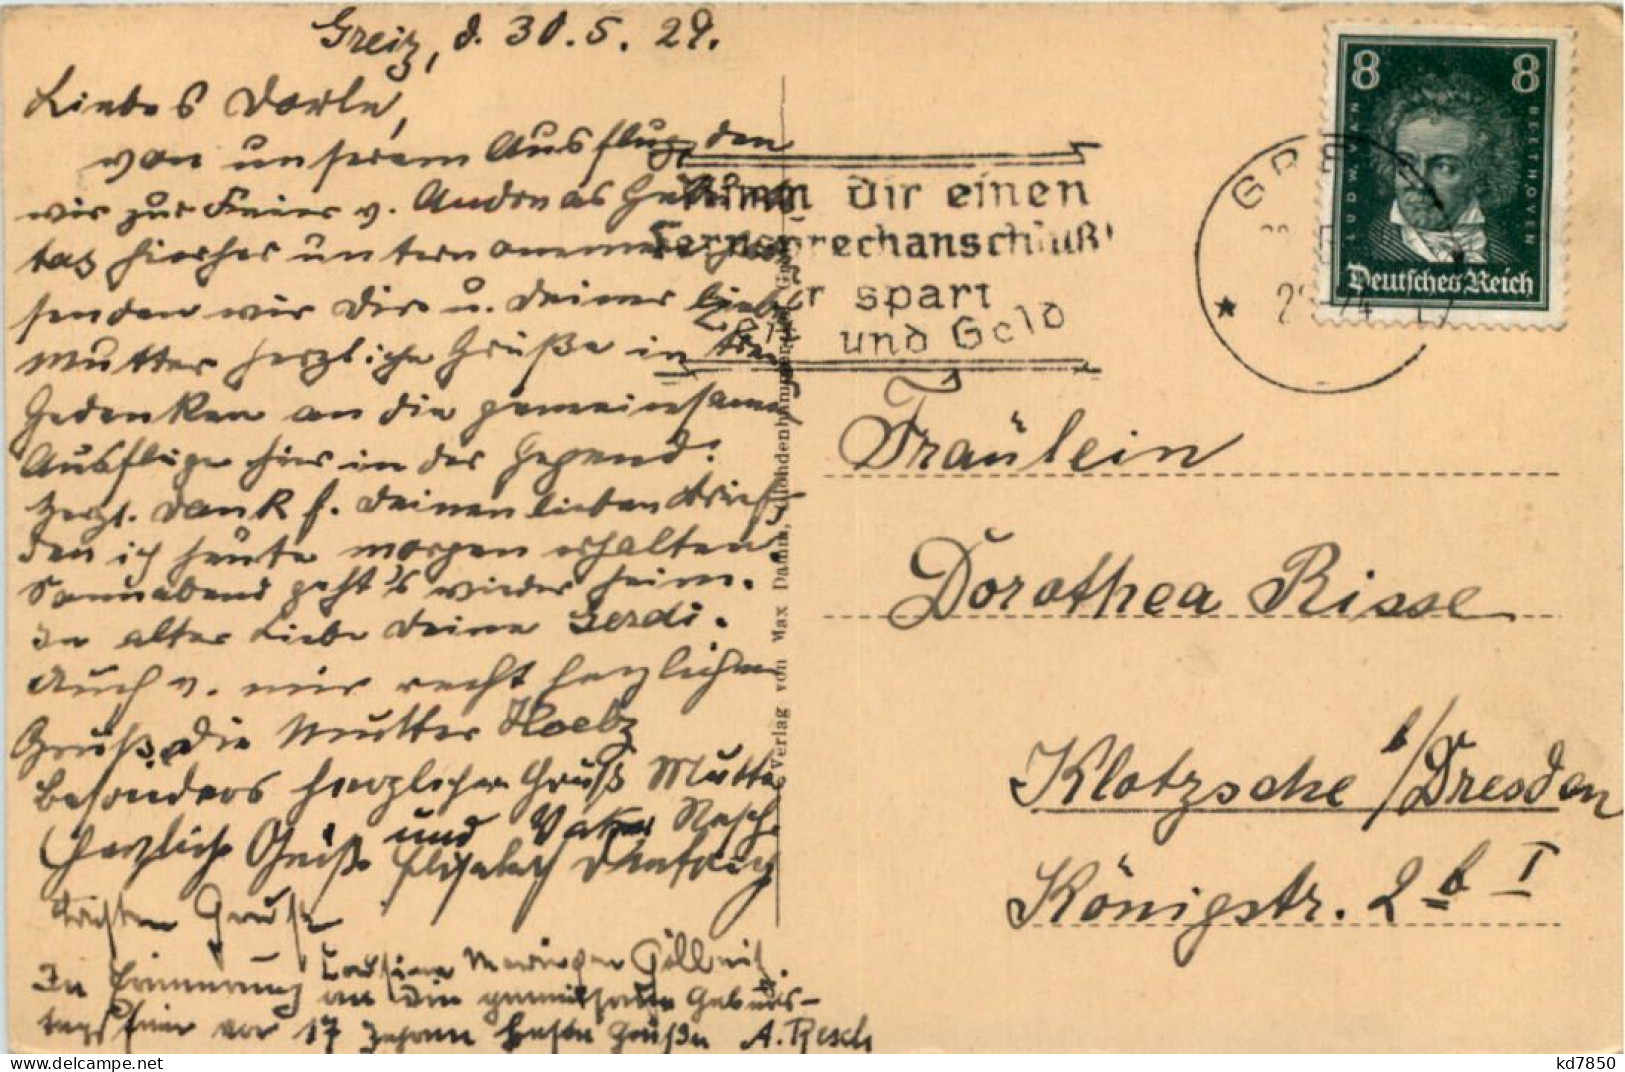 Greiz, d. 30. 5. 29.
Liebes Dorle,
von unserem Ausflug, den
wir zur Feier v. Andreas Geburts
tag hierher unternommen haben
senden wir Dir u. Deiner lieben
Mutter herzliche Grüße in
Gedenken an die gemeinsamen
Ausflüge hier in der Gegend.
Herzl. Dank f. Deinen lieben Brief
den ich heute morgen erhalten.
Sonnabend geht's wieder heim.
In alter Liebe Deine Gerdi.
Auch v. mir recht herzlichen
Gruß, die Mutter
Besonders herzlichen Gruß Mutter
und Vater Resch.
Herzliche Grüße Elisabeth
Besten Gruß
Göllnitz.
In Erinnerung an die gemeinsame Geburts-
tagsfeier vor 17 Jahren beste Grüße A. Resch
Verlag von Max Damm,
Nimm dir einen
Fernsprechanschluß!
Er spart
Zeit und Geld
GREIZ
8 8
LUDW. VAN BEETHOVEN
Deutsches Reich
Fräulein
Dorothea Risse
Klotzsche b/Dresden
Königstr. 2 b I
kd7850